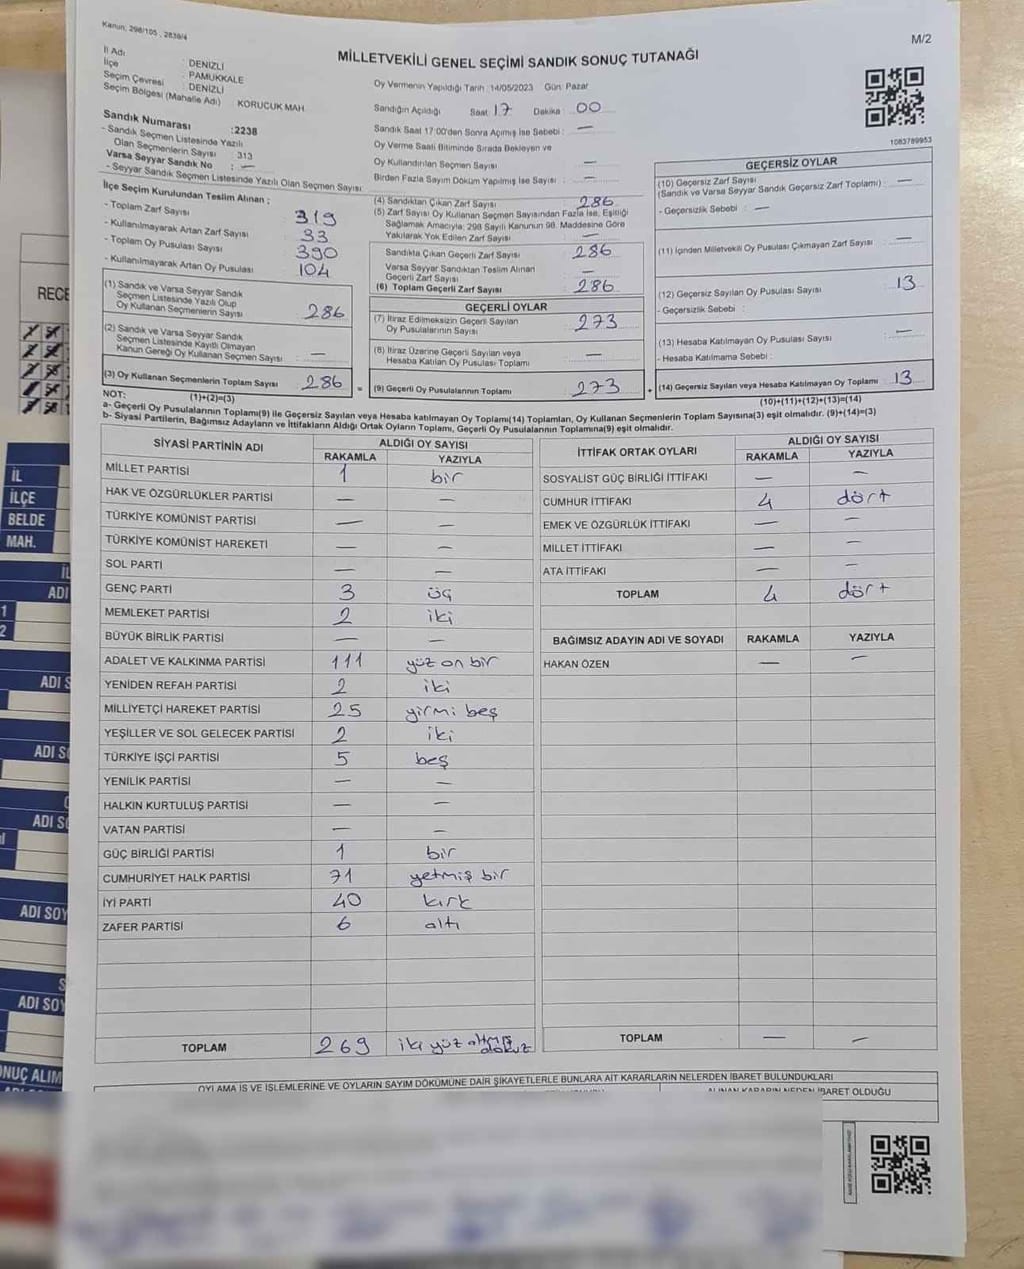 Kanun; 298/105 , 2839/4
M/2
MİLLETVEKİLİ GENEL SEÇİMİ SANDIK SONUÇ TUTANAĞI
İl Adı : DENİZLİ
İlçe : PAMUKKALE
Seçim Çevresi : DENİZLİ
Seçim Bölgesi (Mahalle Adı) KORUCUK MAH.
Sandık Numarası :2238
- Sandık Seçmen Listesinde Yazılı
Olan Seçmenlerin Sayısı : 313
Varsa Seyyar Sandık No : —
- Seyyar Seçmen Listesinde Yazılı Olan Seçmen Sayısı:
İlçe Seçim Kurulundan Teslim Alınan ;
- Toplam Zarf Sayısı 319
- Kullanılmayarak Artan Zarf Sayısı 33
- Toplam Oy Pusulası Sayısı 390
- Kullanılmayarak Artan Oy Pusulası 104
(1) Sandık ve Varsa Seyyar Sandık
Seçmen Listesinde Yazılı Olup
Oy Kullanan Seçmenlerin Sayısı 286
(2) Sandık ve Varsa Seyyar Sandık
Seçmen Listesinde Kayıtlı Olmayan
Kanun Gereği Oy Kullanan Seçmen Sayısı : —
(3) Oy Kullanan Seçmenlerin Toplam Sayısı 286
(1)+(2)=(3)
Oy Vermenin Yapıldığı Tarih :14/05/2023 Gün: Pazar
Sandığın Açıldığı Saat 17 Dakika 00
Sandık Saat 17:00'den Sonra Açılmış İse Sebebi : —
Oy Verme Saati Bitiminde Sırada Bekleyen ve
Oy Kullandırılan Seçmen Sayısı —
Birden Fazla Sayım Döküm Yapılmış İse Sayısı : —
(4) Sandıktan Çıkan Zarf Sayısı 286
(5) Zarf Sayısı Oy Kullanan Seçmen Sayısından Fazla İse, Eşitliği
Sağlamak Amacıyla; 298 Sayılı Kanunun 98. Maddesine Göre
Yakılarak Yok Edilen Zarf Sayısı —
Sandıkta Çıkan Geçerli Zarf Sayısı 286
Varsa Seyyar Sandıktan Teslim Alınan
Geçerli Zarf Sayısı —
(6) Toplam Geçerli Zarf Sayısı 286
GEÇERLİ OYLAR
(7) İtiraz Edilmeksizin Geçerli Sayılan
Oy Pusulalarının Sayısı 273
(8) İtiraz Üzerine Geçerli Sayılan veya
Hesaba Katılan Oy Pusulası Toplamı —
= (9) Geçerli Oy Pusulalarının Toplamı 273 +
1083789953
GEÇERSİZ OYLAR
(10) Geçersiz Zarf Sayısı
(Sandık ve Varsa Seyyar Sandık Geçersiz Zarf Toplamı) : —
- Geçersizlik Sebebi : —
(11) İçinden Milletvekili Oy Pusulası Çıkmayan Zarf Sayısı —
(12) Geçersiz Sayılan Oy Pusulası Sayısı 13
- Geçersizlik Sebebi :
(13) Hesaba Katılmayan Oy Pusulası Sayısı —
- Hesaba Katılmama Sebebi :
(14) Geçersiz Sayılan veya Hesaba Katılmayan Oy Toplamı 13
(10)+(11)+(12)+(13)=(14)
NOT:
a- Geçerli Oy Pusulalarının Toplamı(9) ile Geçersiz Sayılan veya Hesaba katılmayan Oy Toplamı(14) Toplamları, Oy Kullanan Seçmenlerin Toplam Sayısına(3) eşit olmalıdır. (9)+(14)=(3)
b- Siyasi Partilerin, Bağımsız Adayların ve İttifakların Aldığı Ortak Oyların Toplamı, Geçerli Oy Pusulalarının Toplamına(9) eşit olmalıdır.
SİYASİ PARTİNİN ADI ALDIĞI OY SAYISI
RAKAMLA YAZIYLA
MİLLET PARTİSİ 1 bir
HAK VE ÖZGÜRLÜKLER PARTİSİ — —
TÜRKİYE KOMÜNİST PARTİSİ — —
TÜRKİYE KOMÜNİST HAREKETİ — —
SOL PARTİ — —
GENÇ PARTİ 3 üç
MEMLEKET PARTİSİ 2 iki
BÜYÜK BİRLİK PARTİSİ — —
ADALET VE KALKINMA PARTİSİ 111 yüz on bir
YENİDEN REFAH PARTİSİ 2 iki
MİLLİYETÇİ HAREKET PARTİSİ 25 yirmi beş
YEŞİLLER VE SOL GELECEK PARTİSİ 2 iki
TÜRKİYE İŞÇİ PARTİSİ 5 beş
YENİLİK PARTİSİ — —
HALKIN KURTULUŞ PARTİSİ — —
VATAN PARTİSİ — —
GÜÇ BİRLİĞİ PARTİSİ 1 bir
CUMHURİYET HALK PARTİSİ 71 yetmiş bir
İYİ PARTİ 40 kırk
ZAFER PARTİSİ 6 altı
TOPLAM 269 iki yüz altmış dokuz
İTTİFAK ORTAK OYLARI ALDIĞI OY SAYISI
RAKAMLA YAZIYLA
SOSYALİST GÜÇ BİRLİĞİ İTTİFAKI — —
CUMHUR İTTİFAKI 4 dört
EMEK VE ÖZGÜRLÜK İTTİFAKI — —
MİLLET İTTİFAKI — —
ATA İTTİFAKI — —
TOPLAM 4 dört
BAĞIMSIZ ADAYIN ADI VE SOYADI RAKAMLA YAZIYLA
HAKAN ÖZEN — —
TOPLAM — —
OYLAMA İŞ VE İŞLEMLERİNE VE OYLARIN SAYIM DÖKÜMÜNE DAİR ŞİKAYETLERLE BUNLARA AİT KARARLARIN NELERDEN İBARET BULUNDUKLARI
ALINAN KARARIN NEDEN İBARET OLDUĞU
RECE
İL
İLÇE
BELDE
MAH.
İL
ADI
1
2
ADI S
ADI SO
ADI SO
ADI SOY
S
ADI SOY
ONUÇ ALIM